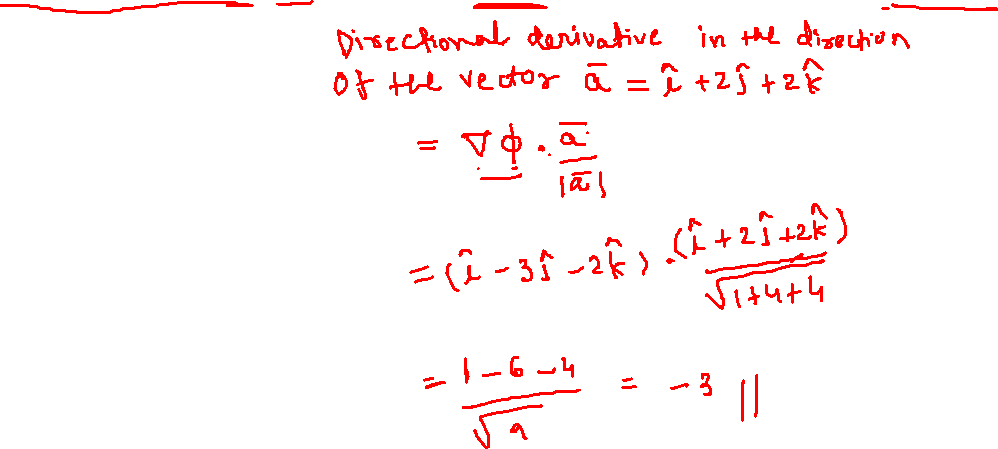 Directional derivative in the direction
of the vector a̅ = î + 2ĵ + 2k̂
= ∇ϕ . a̅ / |a̅|
= (î - 3ĵ - 2k̂) . (î + 2ĵ + 2k̂) / √1+4+4
= 1 - 6 - 4 / √9 = -3 ||